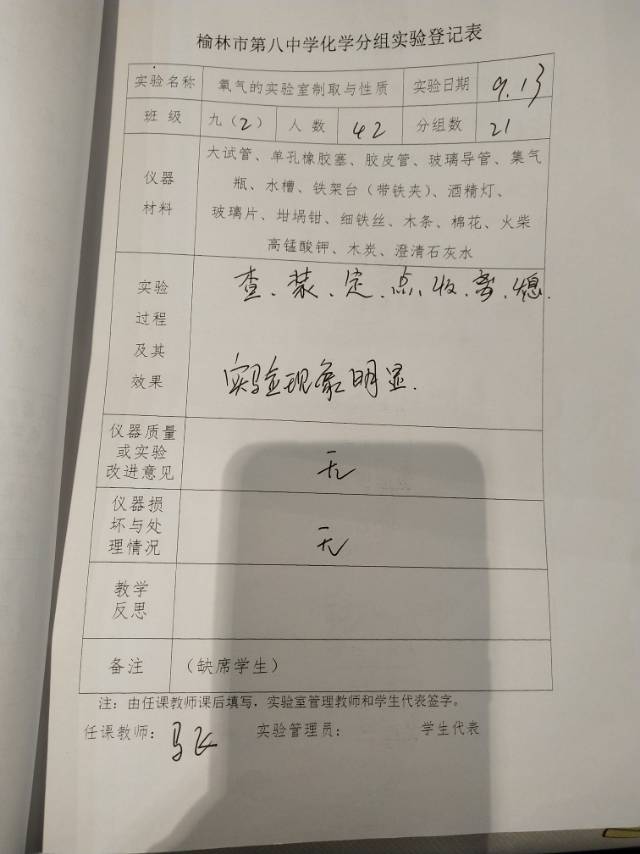 榆林市第八中学化学分组实验登记表
实验名称 氧气的实验室制取与性质 实验日期 9.13
班 级 九（2） 人 数 42 分组数 21
仪器
材料
大试管、单孔橡胶塞、胶皮管、玻璃导管、集气
瓶、水槽、铁架台（带铁夹）、酒精灯、
玻璃片、坩埚钳、细铁丝、木条、棉花、火柴
高锰酸钾、木炭、澄清石灰水
实验
过程
及其
效果
查、装、定、点、收、离、熄.
实验现象明显.
仪器质量
或实验
改进意见
无
仪器损
坏与处
理情况
无
教学
反思
备注 （缺席学生）
注：由任课教师课后填写，实验室管理教师和学生代表签字。
任课教师：马飞 实验管理员： 学生代表